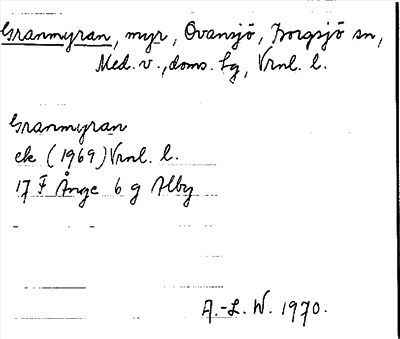 Granmyran, myr, Ovansjö, Borgsjö sn,
Med. v., doms. lg, Vrnl. l.
Granmyran
ek (1969) Vrnl. l.
17 F Ånge 6 g Alby
A.-L. W. 1970.